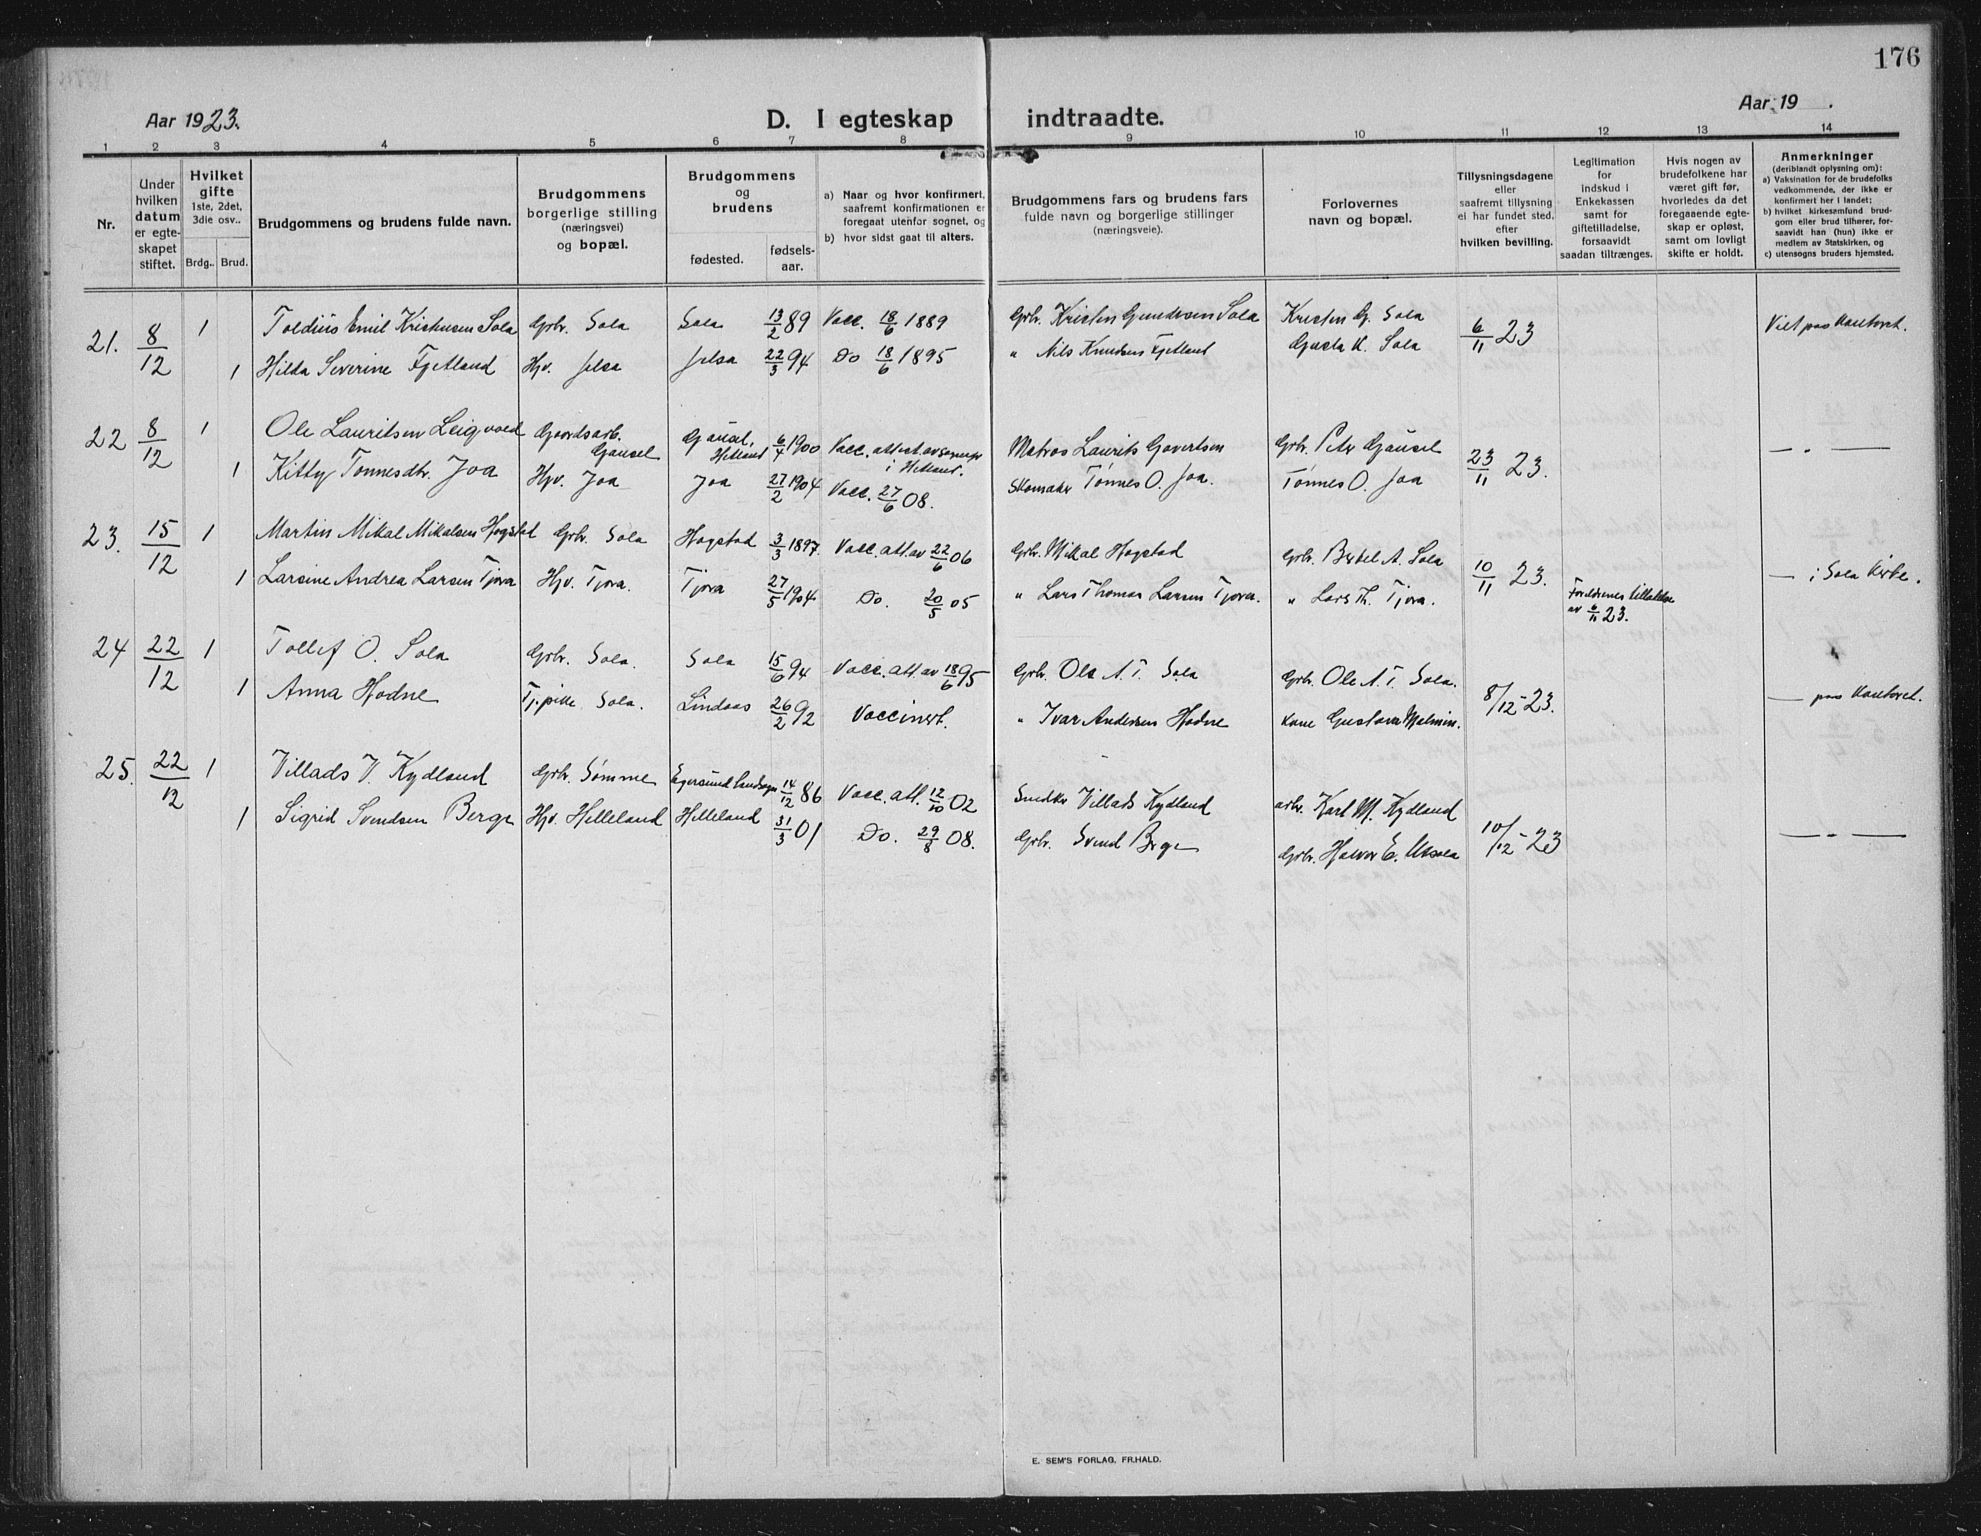 176
Aar 1923.
D. I egteskap indtraadte.
Aar 19 .
1 2 3 4 5 6 7 8 9 10 11 12 13 14
Nr.
Under hvilken datum er egteskapet stiftet.
Hvilket gifte 1ste, 2det, 3die osv..
Brdg.. Brud.
Brudgommens og brudens fulde navn.
Brudgommens borgerlige stilling (næringsvei) og bopæl.
Brudgommens og brudens
fødested. fødselsaar.
a) Naar og hvor konfirmert, saafremt konfirmationen er foregaat utenfor sognet, og
b) hvor sidst gaat til alters.
Brudgommens fars og brudens fars fulde navn og borgerlige stillinger (næringsveie).
Forlovernes navn og bopæl.
Tillysningsdagene eller saafremt tillysning ei har fundet sted, efter hvilken bevilling.
Legitimation for indskud i Enkekassen samt for giftetilladelse, forsaavidt saadan tiltrænges.
Hvis nogen av brudefolkene har været gift før, hvorledes da det foregaaende egteskap er opløst, samt om lovligt skifte er holdt.
Anmerkninger (deriblandt oplysning om):
a) Vaksination for de brudefolks vedkommende, der ikke er konfirmert her i landet;
b) hvilket kirkesamfund brudgom eller brud tilhører, forsaavidt han (hun) ikke er medlem av Statskirken, og
c) utensogns bruders hjemsted.
21. 8/12 1 Toldius Emil Kristensen Sola Grbr. Sola Sola 13/2 89 Vacc. 18/6 1889 Grbr. Kristen Gundersen Sola Kristen G. Sola 6/11 23 Viet paa Kontoret.
1 Hilda Severine Fjetland Hv. Jelsa Jelsa 22/3 94 Do 18/6 1895 " Nils Knudsen Fjetland Gusta K. Sola
22 8/12 1 Ole Lauritsen Leigvold Gaardsarb. Gausel Gausel, Hetland 6/4 1900 Vacc. attest av i Hetland. Matros Laurits Govertsen Grbr. Peter Gausel 23/11 23. — " —
1 Kitty Tønnesdtr. Joa Hv. Joa Joa 27/2 1904 Vacc. 27/6 08. Skomaker Tønnes O. Joa. Tønnes O. Joa
23. 15/12 1 Martin Mikal Mikalsen Hogstad Grbr. Sola Hogstad 3/3 1897 Vacc. att. av 22/6 06 Grbr. Mikal Hogstad Grbr. Bertel A. Sola 10/11 23. — i Sola Kirke.
1 Larsine Andrea Larsen Tjora Hv. Tjora Tjora 27/5 1904 Do. 20/5 05 " Lars Thomas Larsen Tjora. " Lars Th. Tjora. Foreldrenes tillatelse av 6/11 23.
24 22/12 1 Tollef O. Sola Grbr. Sola. Sola 15/6 94 Vacc. att. av 18/6 95 Grbr. Ole A. T. Sola Grbr. Ole A. T. Sola. 8/12-23. — paa Kontoret.
1 Anna Hodne Tj.pike Sola. Lindaas 26/2 92 Vaccinert. " Ivar Andersen Hodne Kone Gustava Malmin.
25. 22/12 1 Villads V. Kydland Grbr. Sømme Egersund landsogn 14/12 86 Vacc. att. 12/10 02 Snedker Villads Kydland arbr. Karl M. Kydland 10/12-23 — " —
1 Sigrid Svendsen Berge Hv. Helleland Helleland 31/3 01 Do. 29/8 08. Grbr. Svend Berge Grbr. Halvor E. Utsola
E. SEM'S FORLAG, FR.HALD.